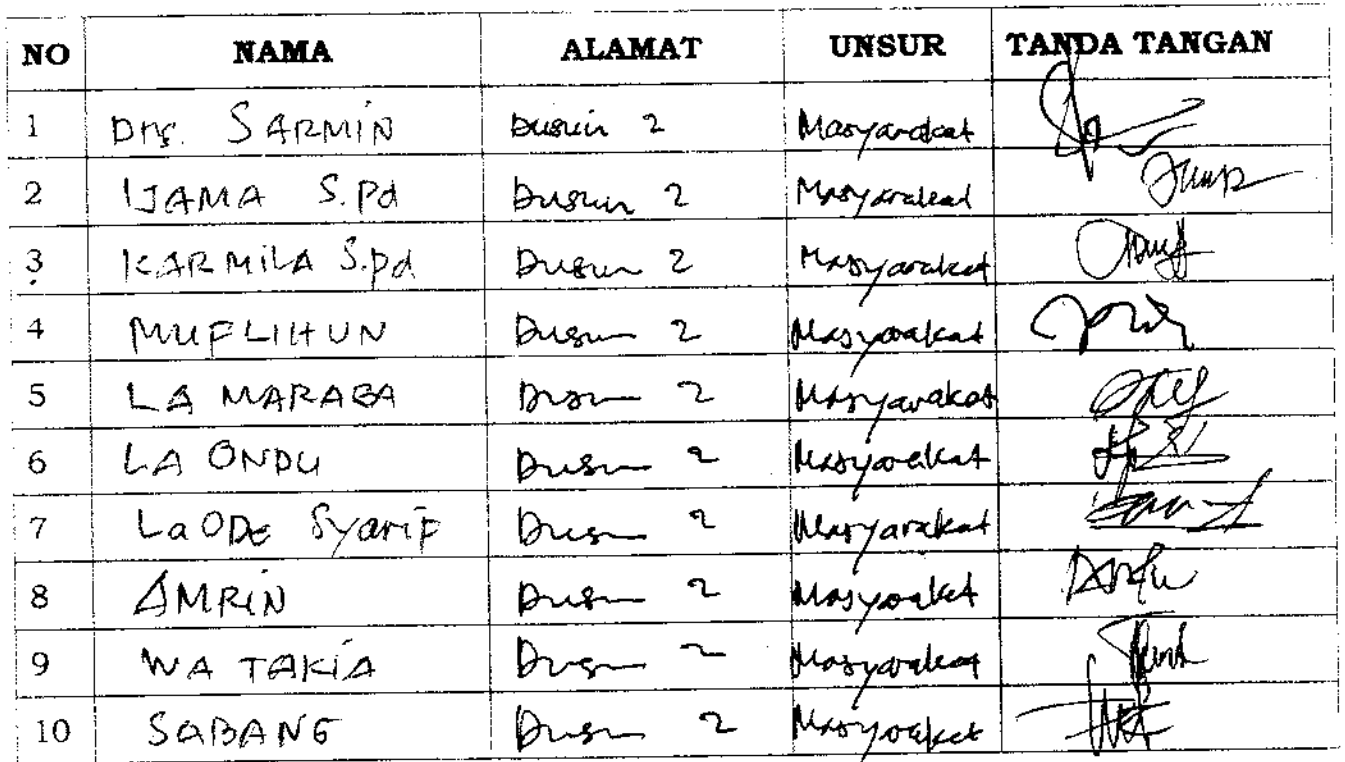 NO NAMA ALAMAT UNSUR TANDA TANGAN
1 Drs. SARMIN Dusun 2 Masyarakat
2 IJAMA S.Pd Dusun 2 Masyarakat
3 KARMILA S.Pd Dusun 2 Masyarakat
4 MUFLIHUN Dusun 2 Masyarakat
5 LA MARABA Dusun 2 Masyarakat
6 LA ONDU Dusun 2 Masyarakat
7 La ODE Syarif Dusun 2 Masyarakat
8 AMRIN Dusun 2 Masyarakat
9 WA TAKIA Dusun 2 Masyarakat
10 SABANG Dusun 2 Masyarakat